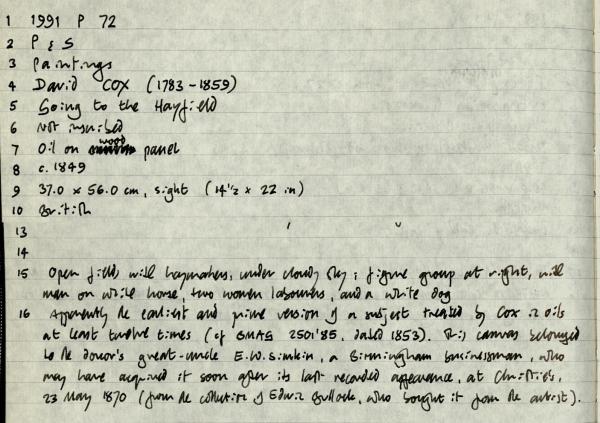 1 1991 P 72
2 P & S
3 Paintings
4 David COX (1783-1859)
5 Going to the Hayfield
6 Not inscribed
7 Oil on wood panel
8 c. 1849
9 37.0 x 56.0 cm, sight (14½ x 22 in)
10 British
13
14
15 Open field, with haymakers, under cloudy sky; figure group at right, with
man on white horse, two women labourers, and a white dog
16 Apparently the earliest and prime version of a subject treated by Cox in oils
at least twelve times (cf BMAG 2501'85, dated 1853). This canvas belonged
to the donor's great-uncle E.W. Simkin, a Birmingham businessman, who
may have acquired it soon after its last recorded appearance, at Christie's,
23 May 1870 (from the collection of Edwin Bullock, who bought it from the artist).